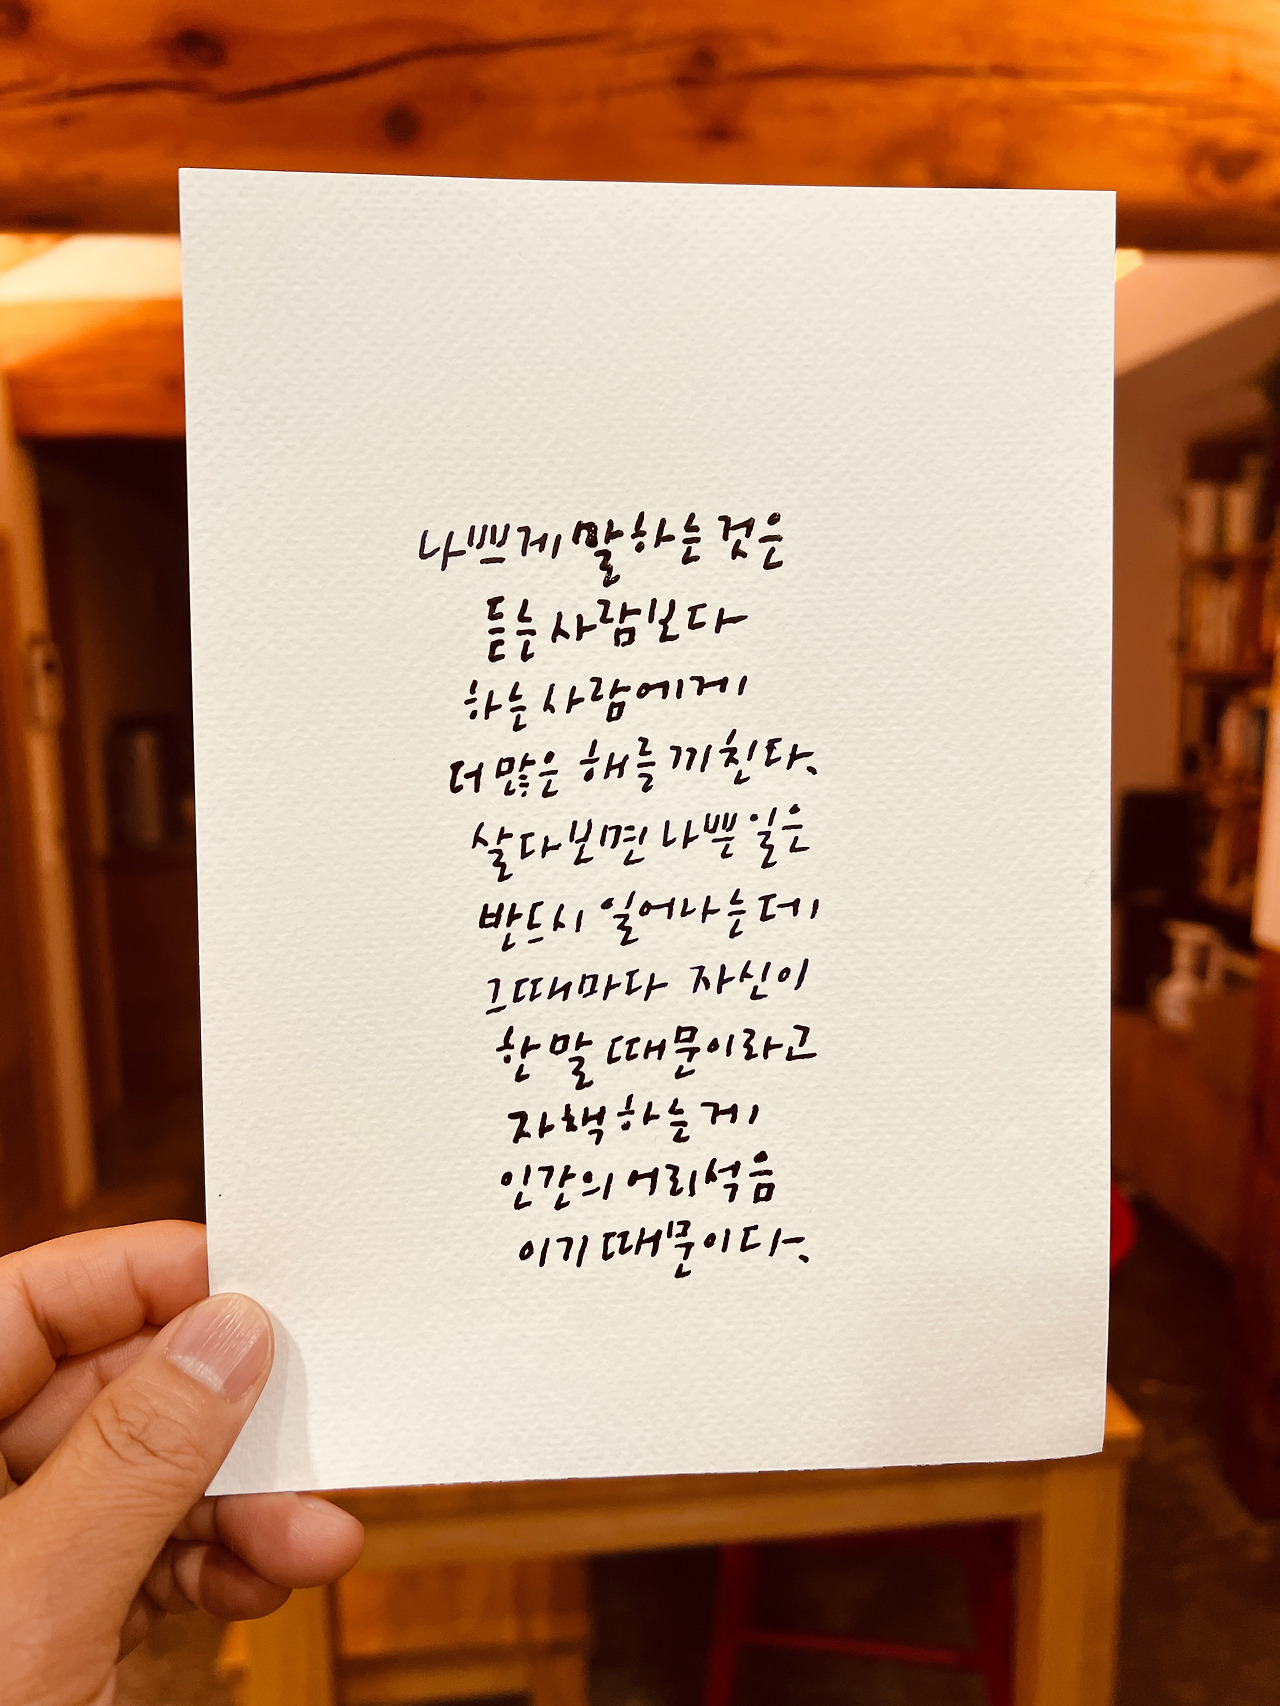 나쁘게 말하는 것은
듣는 사람보다
하는 사람에게
더 많은 해를 끼친다.
살다보면 나쁜 일은
반드시 일어나는데
그때마다 자신이
한 말 때문이라고
자책하는게
인간의 어리석음
이기 때문이다.